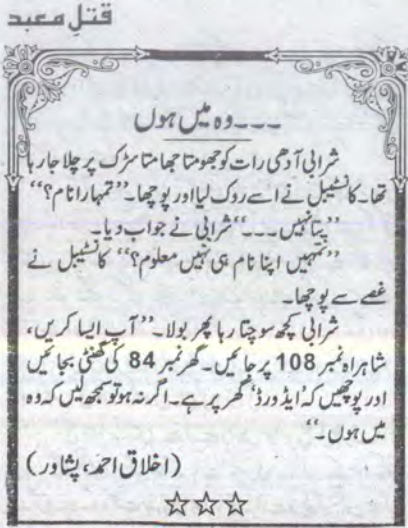 قتلِ معبد
۔۔۔وہ میں ہوں
شرابی آدھی رات کو جھومتا جھامتا سڑک پر چلا جا رہا
تھا۔ کانسٹیبل نے اسے روک لیا اور پوچھا۔ ’’تمہارا نام؟‘‘
’’پتا نہیں۔۔۔‘‘ شرابی نے جواب دیا۔
’’تمہیں اپنا نام ہی نہیں معلوم؟‘‘ کانسٹیبل نے
غصے سے پوچھا۔
شرابی کچھ سوچتا رہا پھر بولا۔ ’’آپ ایسا کریں،
شاہراہ نمبر 108 پر جائیں۔ گھر نمبر 84 کی گھنٹی بجائیں
اور پوچھیں کہ ’ایڈورڈ‘ گھر پر ہے۔ اگر نہ ہو تو سمجھ لیں کہ وہ
میں ہوں۔‘‘
(اخلاق احمد، پشاور)
☆☆☆